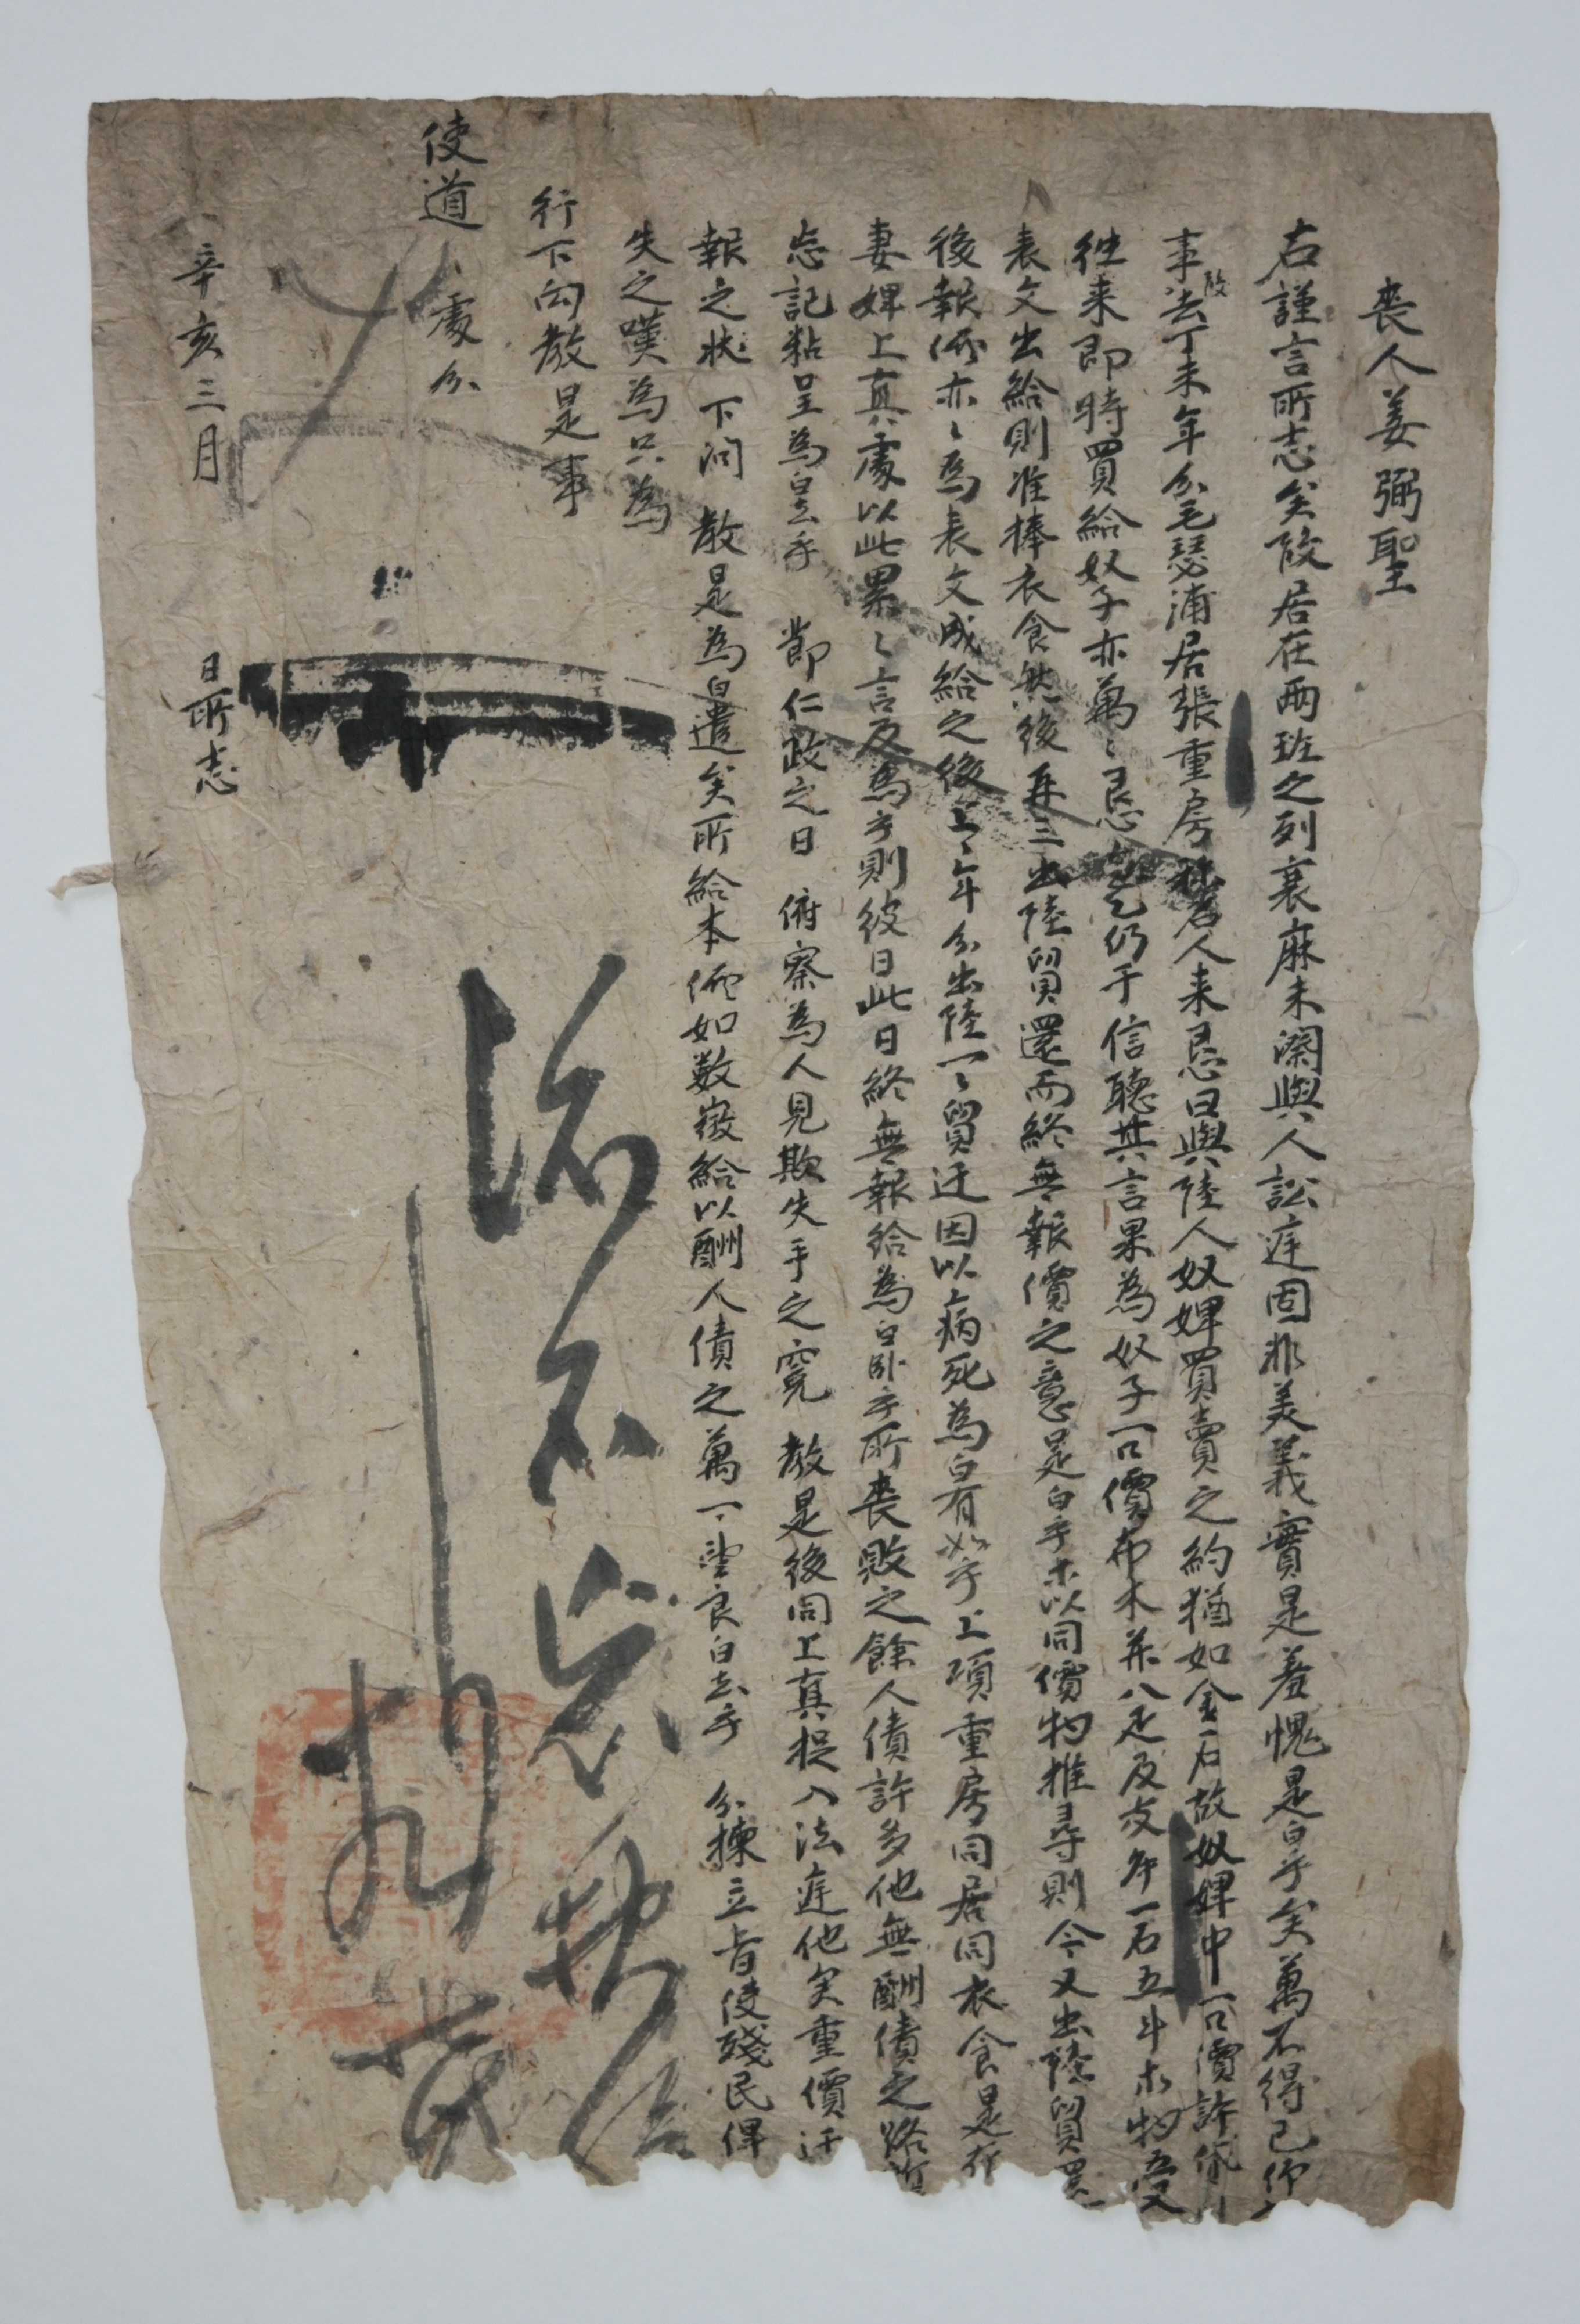 喪人姜弼聖
右謹言所志矣段居在兩班之列衰麻未闋與人訟庭固非美義實是羞愧是白乎矣萬不得已仰
事段去丁未年分毛瑟浦居張重房稱名人来恳曰與陸人奴婢買賣之約猶如金石故奴婢中一口價許貸
往来即時買給奴子亦萬〻恳乞仍于信聽其言果為奴子一口價布木并八疋及皮牟一石五斗木物乙受
表文出給則准捧衣食然後再三出陸貿還而終無報價之意是白乎木以同價物推尋則今又出陸貿還
後報價亦〻為表文成給之後上年分出陸一〻貿迁因以病死為白有如乎上項重房同居同衣食是在
妻婢上真處以此累〻言及為乎則彼日此日終無報給為白卧乎所喪敗之餘人債許多他無酬債之路
忘記粘呈為白去乎 節仁政之日 俯察為人見欺失手之寃 教是後同上真捉入法庭他矣重價
報之狀 下問 教是為白遣矣所給本價如數徵給以酬人債之萬一望良白去乎 分揀立旨使殘民俾
失之嘆為只為
行下向教是事
使道 處分
辛亥三月 日所志